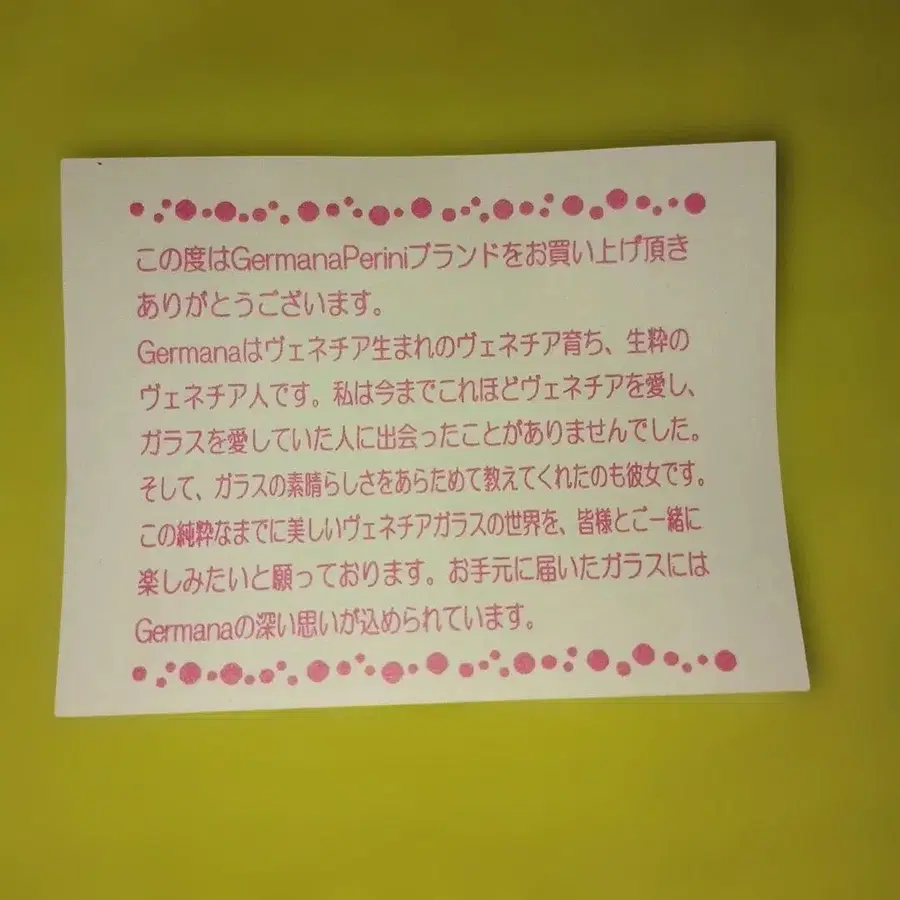 この度はGermanaPeriniブランドをお買い上げ頂き
ありがとうございます。
Germanaはヴェネチア生まれのヴェネチア育ち、生粋の
ヴェネチア人です。私は今までこれほどヴェネチアを愛し、
ガラスを愛していた人に出会ったことがありませんでした。
そして、ガラスの素晴らしさをあらためて教えてくれたのも彼女です。
この純粋なまでに美しいヴェネチアガラスの世界を、皆様とご一緒に
楽しみたいと願っております。お手元に届いたガラスには
Germanaの深い思いが込められています。